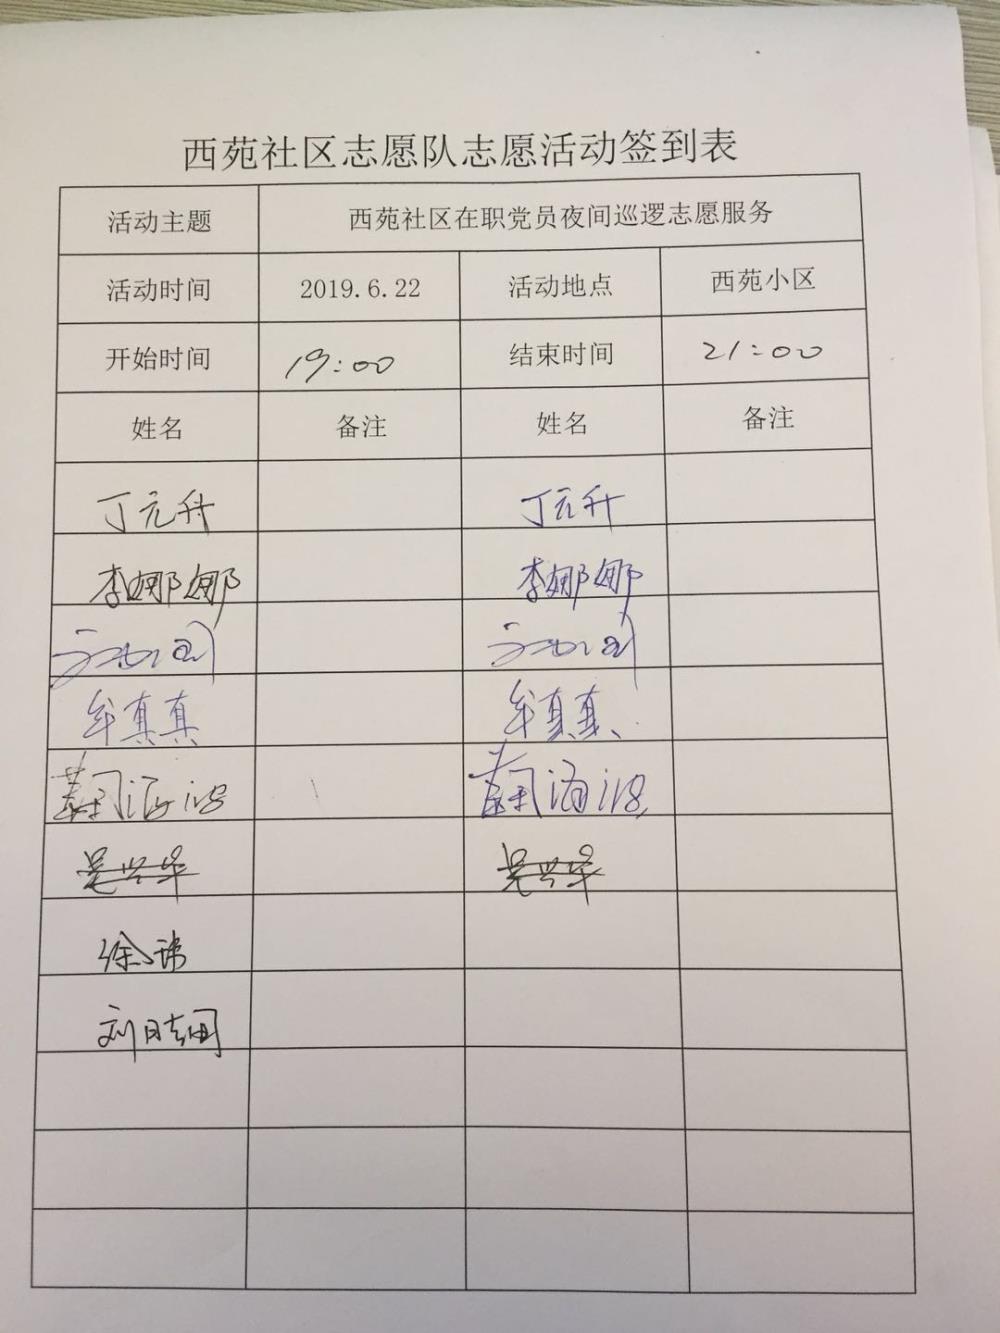 西苑社区志愿队志愿活动签到表
活动主题 西苑社区在职党员夜间巡逻志愿服务
活动时间 2019.6.22 活动地点 西苑小区
开始时间 19:00 结束时间 21:00
姓名 备注 姓名 备注
丁元升 丁元升
李娜娜 李娜娜
牟真真 牟真真
吴兴华 吴兴华
徐
刘